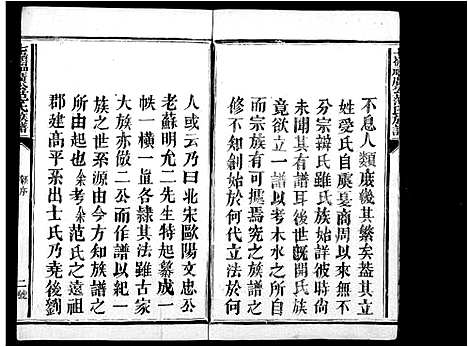 不息人類賡後其繁矣葢其立
姓受氏自虞夏商周以來無不
分宗辨氏雖氏族始詳彼時尚
未聞其有譜耳後世旣開氏族
竟欲創一譜以考木水之所自
而宗族有可攄焉究之族譜亦
不可知創始於何代立法於何
人或云乃曰北宋歐陽文忠公
老蘇明允二先生特起纂成一
帙一橫一直各隸其法雖古家
大族亦倣二公而作譜以紀一
族之世系源由今方知族譜一
郡建高平系出士氏乃堯後劉
也余考余范氏之遠祖
二號